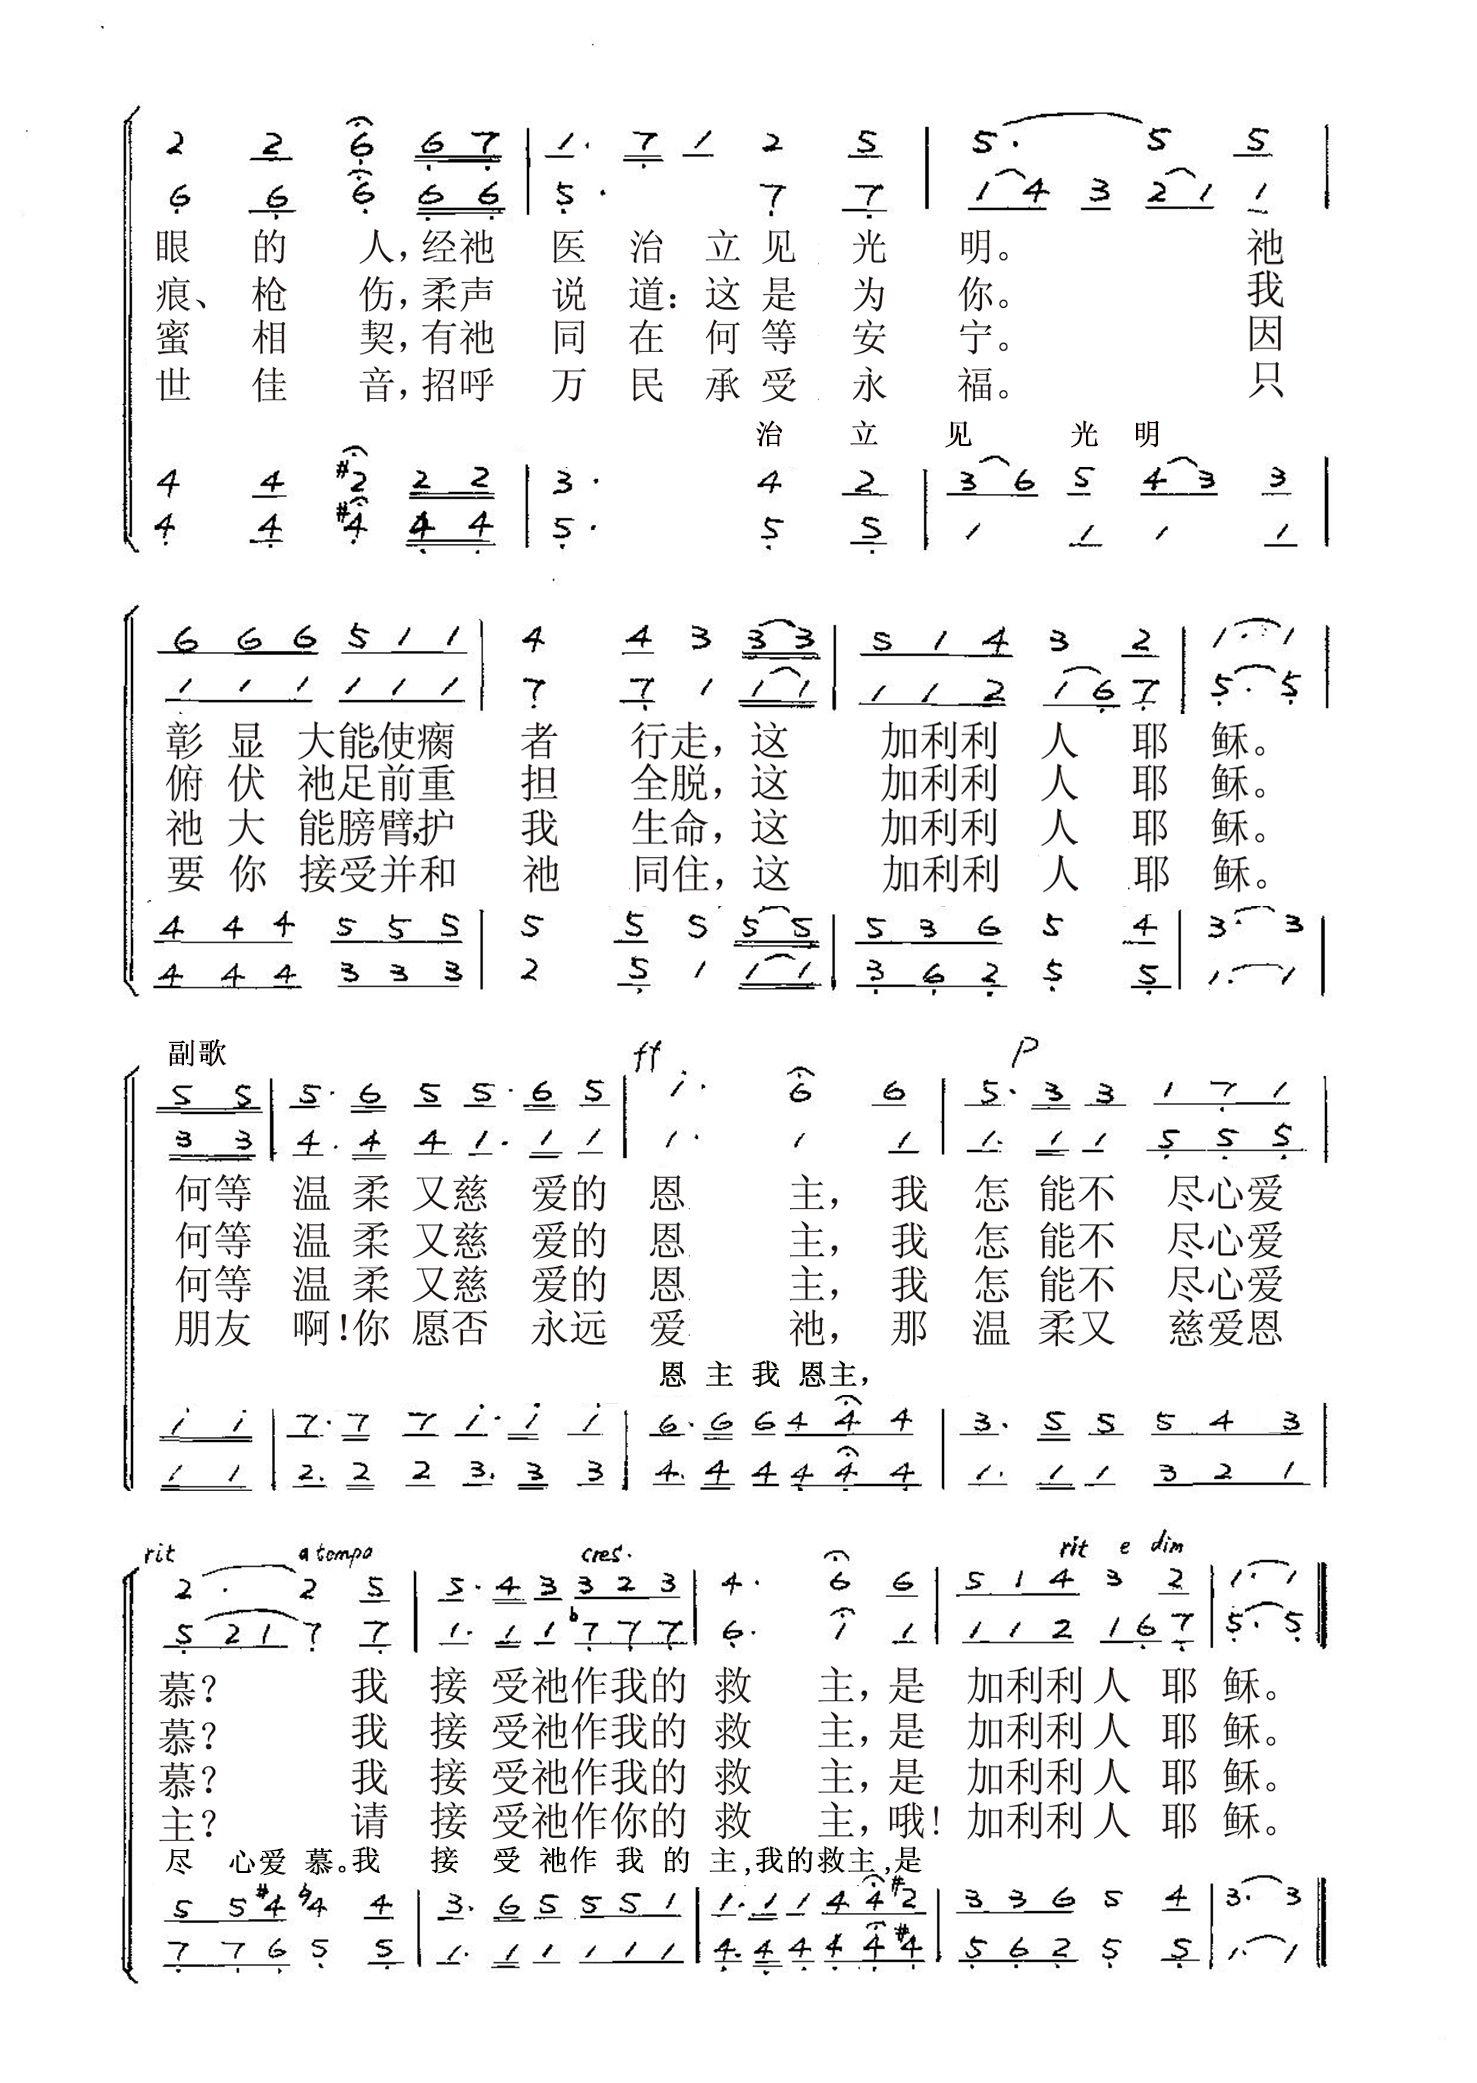 2 2 6 6 7 | 1. 7 1 2 5 | 5. 5 5 |
6 6 6 6 6 | 5. 7 7 | 1 4 3 2 1 1 |
眼的人,经祂医治立见光明。祂
痕、枪伤,柔声说道:这是为你。我
蜜相契,有祂同在何等安宁。因
世佳音,招呼万民承受永福。只
治立见光明
4 4 #2 2 2 | 3. 4 2 | 3 6 5 4 3 3 |
4 4 #4 4 4 | 5. 5 5 | 1 1 1 1 |
6 6 6 5 1 1 | 4 4 3 3 3 | 5 1 4 3 2 | 1. 1 |
1 1 1 1 1 1 | 7 7 1 1 1 | 1 1 2 1 6 7 | 5. 5 |
彰显大能,使瘸者行走,这加利利人耶稣。
俯伏祂足前重担全脱,这加利利人耶稣。
祂大能膀臂,护我生命,这加利利人耶稣。
要你接受并和祂同住,这加利利人耶稣。
4 4 4 5 5 5 | 5 5 5 5 5 | 5 3 6 5 4 | 3. 3 |
4 4 4 3 3 3 | 2 5 1 1 1 | 3 6 2 5 5 | 1. 1 |
副歌 ff p
5 5 | 5. 6 5 5. 6 5 | i. 6 6 | 5. 3 3 1 7 1 |
3 3 | 4. 4 4 1. 1 1 | 1. 1 1 | 1. 1 1 5 5 5 |
何等温柔又慈爱的恩主,我怎能不尽心爱
何等温柔又慈爱的恩主,我怎能不尽心爱
何等温柔又慈爱的恩主,我怎能不尽心爱
朋友啊!你愿否永远爱祂,那温柔又慈爱恩
恩主我恩主,
i i | 7. 7 7 i. i i | 6. 6 6 4 4 4 | 3. 5 5 5 4 3 |
1 1 | 2. 2 2 3. 3 3 | 4. 4 4 4 4 4 | 1. 1 1 3 2 1 |
rit a tempo cres. rit e dim
2. 2 5 | 5. 4 3 3 2 3 | 4. 6 6 | 5 1 4 3 2 | 1. 1 ‖
5 2 1 7 7 | 1. 1 1 b7 7 7 | 6. 1 1 | 1 1 2 1 6 7 | 5. 5 ‖
慕?我接受祂作我的救主,是加利利人耶稣。
慕?我接受祂作我的救主,是加利利人耶稣。
慕?我接受祂作我的救主,是加利利人耶稣。
主?请接受祂作你的救主,哦!加利利人耶稣。
尽心爱慕。我接受祂作我的主,我的救主,是
5 5 #4 ♮4 4 | 3. 6 5 5 5 1 | 1. 1 1 4 4 #2 | 3 3 6 5 4 | 3. 3 ‖
7 7 6 5 5 | 1. 1 1 1 1 1 | 4. 4 4 4 4 #4 | 5 6 2 5 5 | 1. 1 ‖